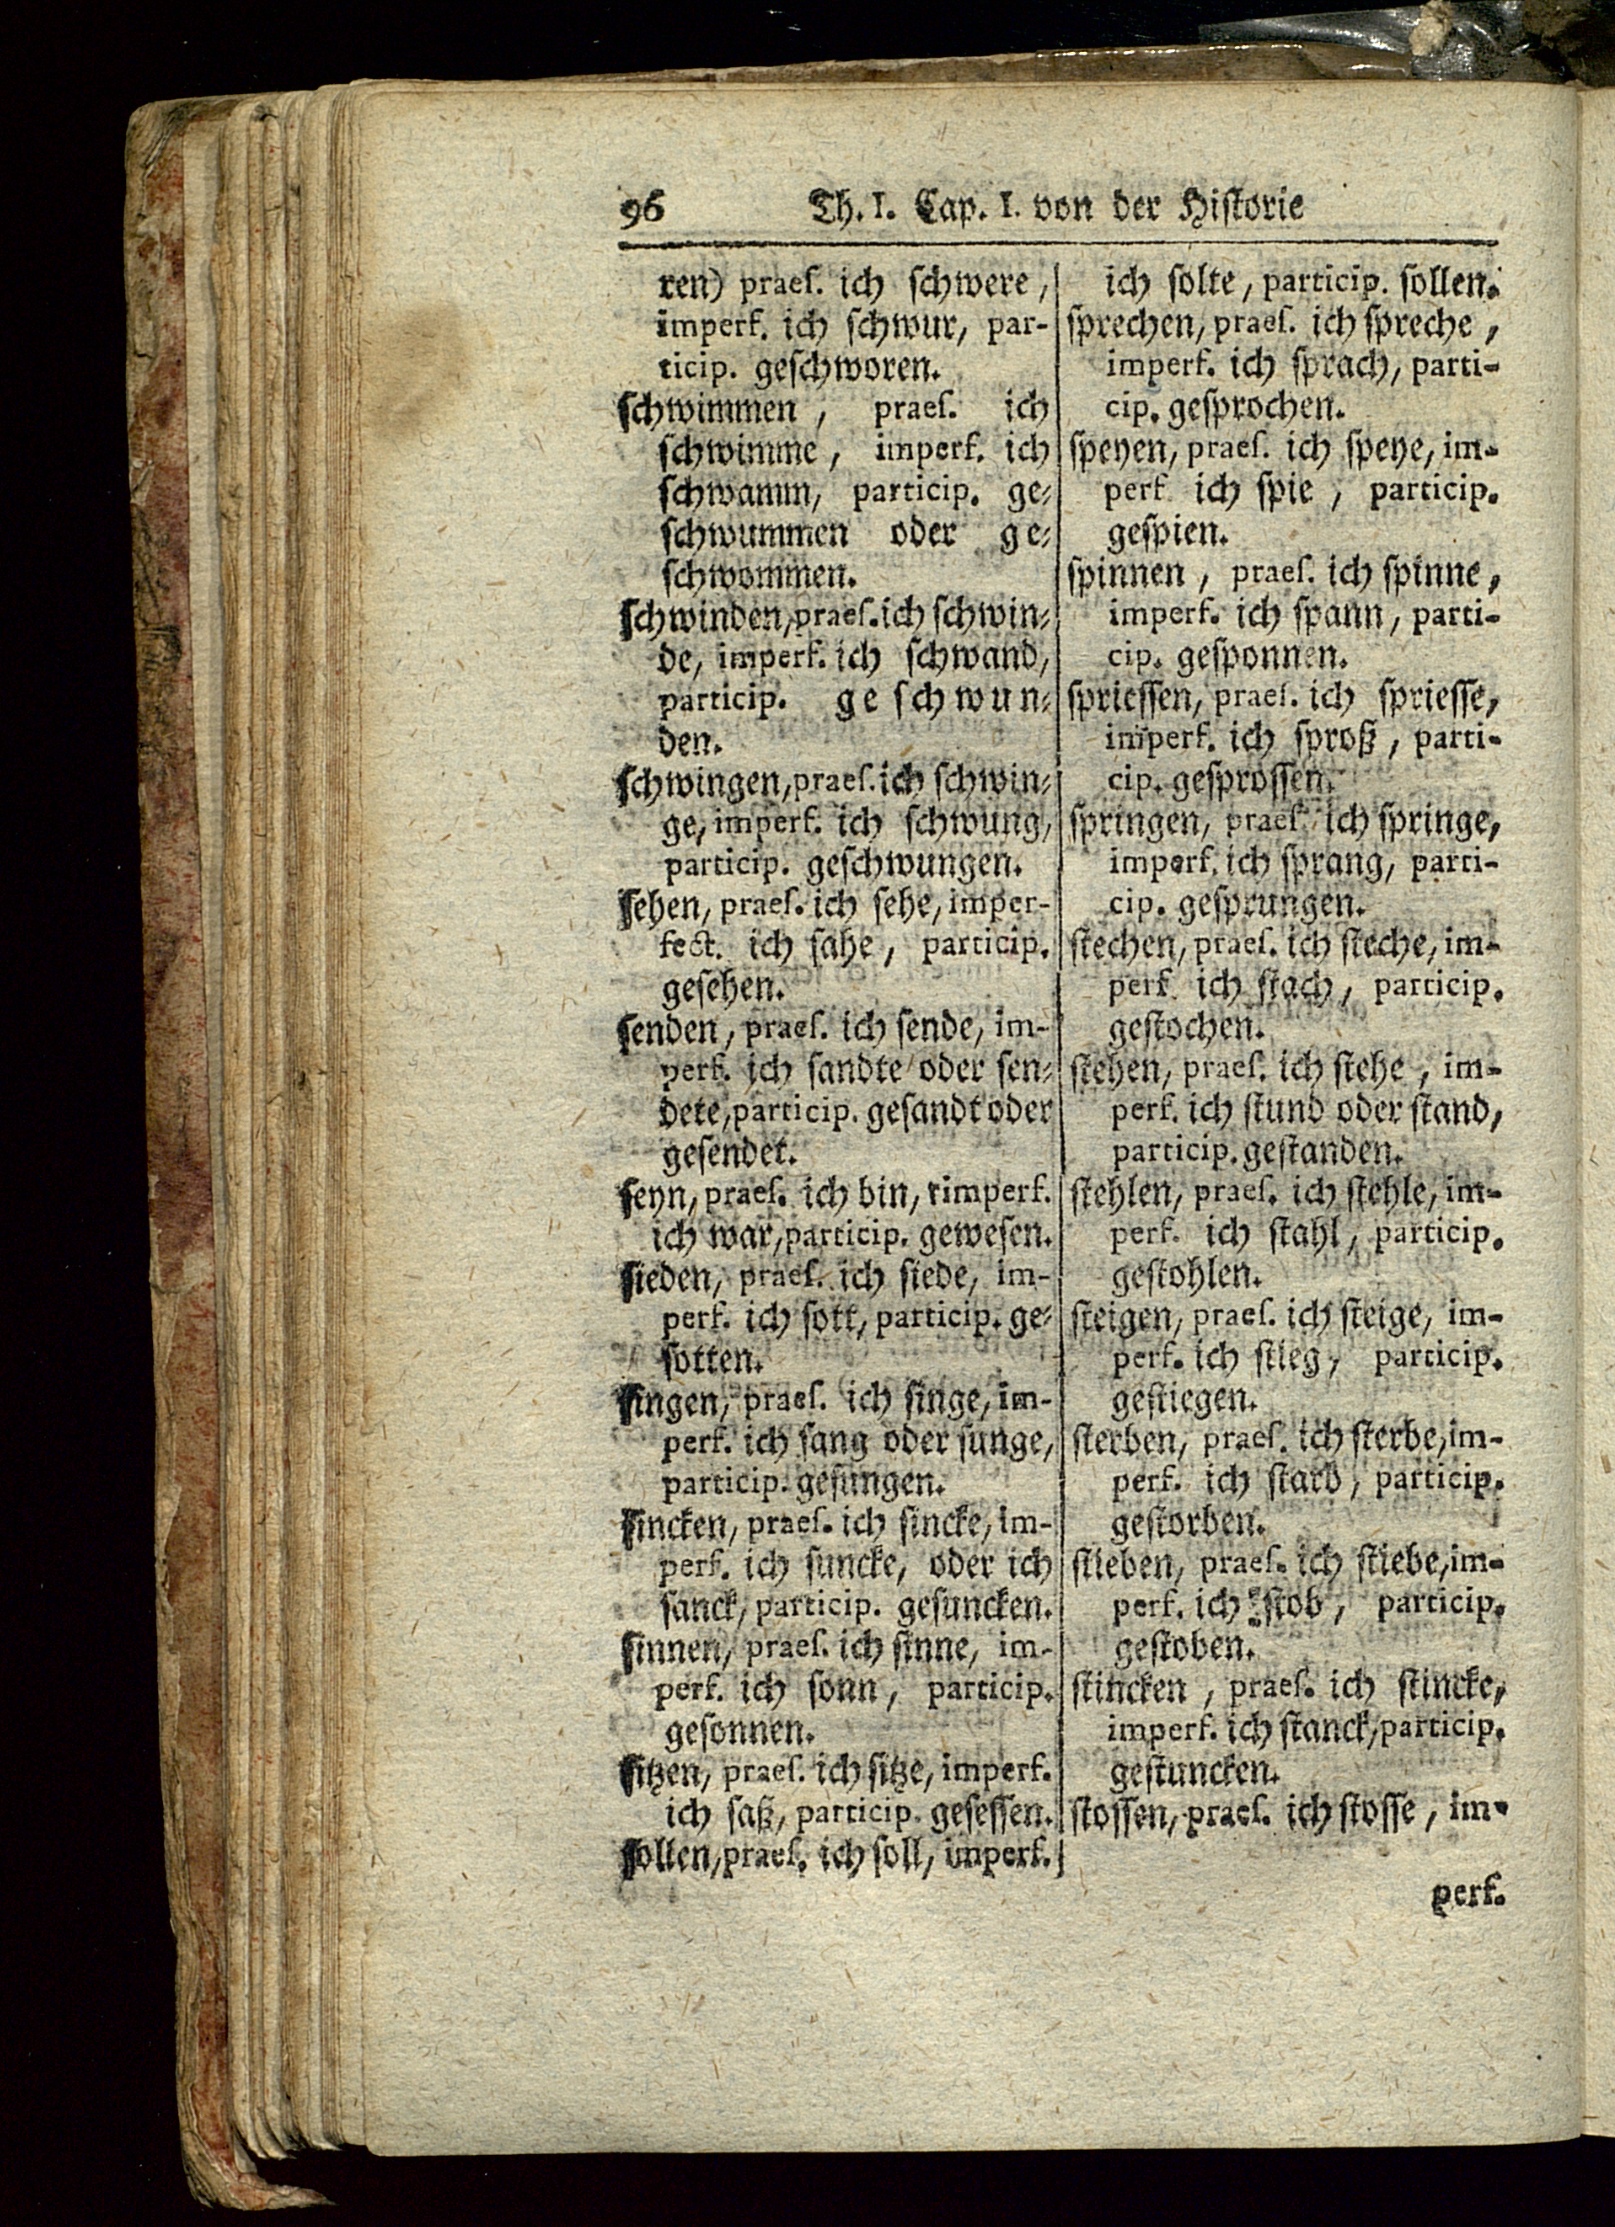 96 Th. I. Cap. I. von der Historie
ren) praes. ich schwere,
imperf. ich schwur, par-
ticip. geschworen.
schwimmen, praes. ich
schwimme, imperf. ich
schwamm, particip. ge-
schwummen oder ge-
schwommen.
schwinden, praes. ich schwin-
de, imperf. ich schwand,
particip. geschwun-
den.
schwingen, praes. ich schwin-
ge, imperf. ich schwung,
particip. geschwungen.
sehen, praes. ich sehe, imper-
fect. ich sahe, particip.
gesehen.
senden, praes. ich sende, im-
perf. ich sandte oder sen-
dete, particip. gesandt oder
gesendet.
seyn, praes. ich bin, rimperf.
ich war, particip. gewesen.
sieden, praes. ich siede, im-
perf. ich sott, particip. ge-
sotten.
singen, praes. ich singe, im-
perf. ich sang oder sunge,
particip. gesungen.
sincken, praes. ich sincke, im-
perf. ich suncke, oder ich
sanck, particip. gesuncken.
sinnen, praes. ich sinne, im-
perf. ich sonn, particip.
gesonnen.
sitzen, praes. ich sitze, imperf.
ich saß, particip. gesessen.
sollen, praes. ich soll, imperf.
ich solte, particip. sollen.
sprechen, praes. ich spreche,
imperf. ich sprach, parti-
cip. gesprochen.
speyen, praes. ich speye, im-
perf ich spie, particip.
gespien.
spinnen, praes. ich spinne,
imperf. ich spann, parti-
cip. gesponnen.
spriessen, praes. ich spriesse,
imperf. ich sproß, parti-
cip. gesprossen.
springen, praes ich springe,
imperf. ich sprang, parti-
cip. gesprungen.
stechen, praes. ich steche, im-
perf ich stach, particip.
gestochen.
stehen, praes. ich stehe, im-
perf. ich stund oder stand,
particip. gestanden.
stehlen, praes. ich stehle, im-
perf. ich stahl, particip.
gestohlen.
steigen, praes. ich steige, im-
perf. ich stieg, particip.
gestiegen.
sterben, praes. ich sterbe, im-
perf. ich starb, particip.
gestorben.
stieben, praes. ich stiebe, im-
perf. ich stob, particip.
gestoben.
stincken, praes. ich stincke,
imperf. ich stanck, particip.
gestuncken.
stossen, praes. ich stosse, im-
perf.